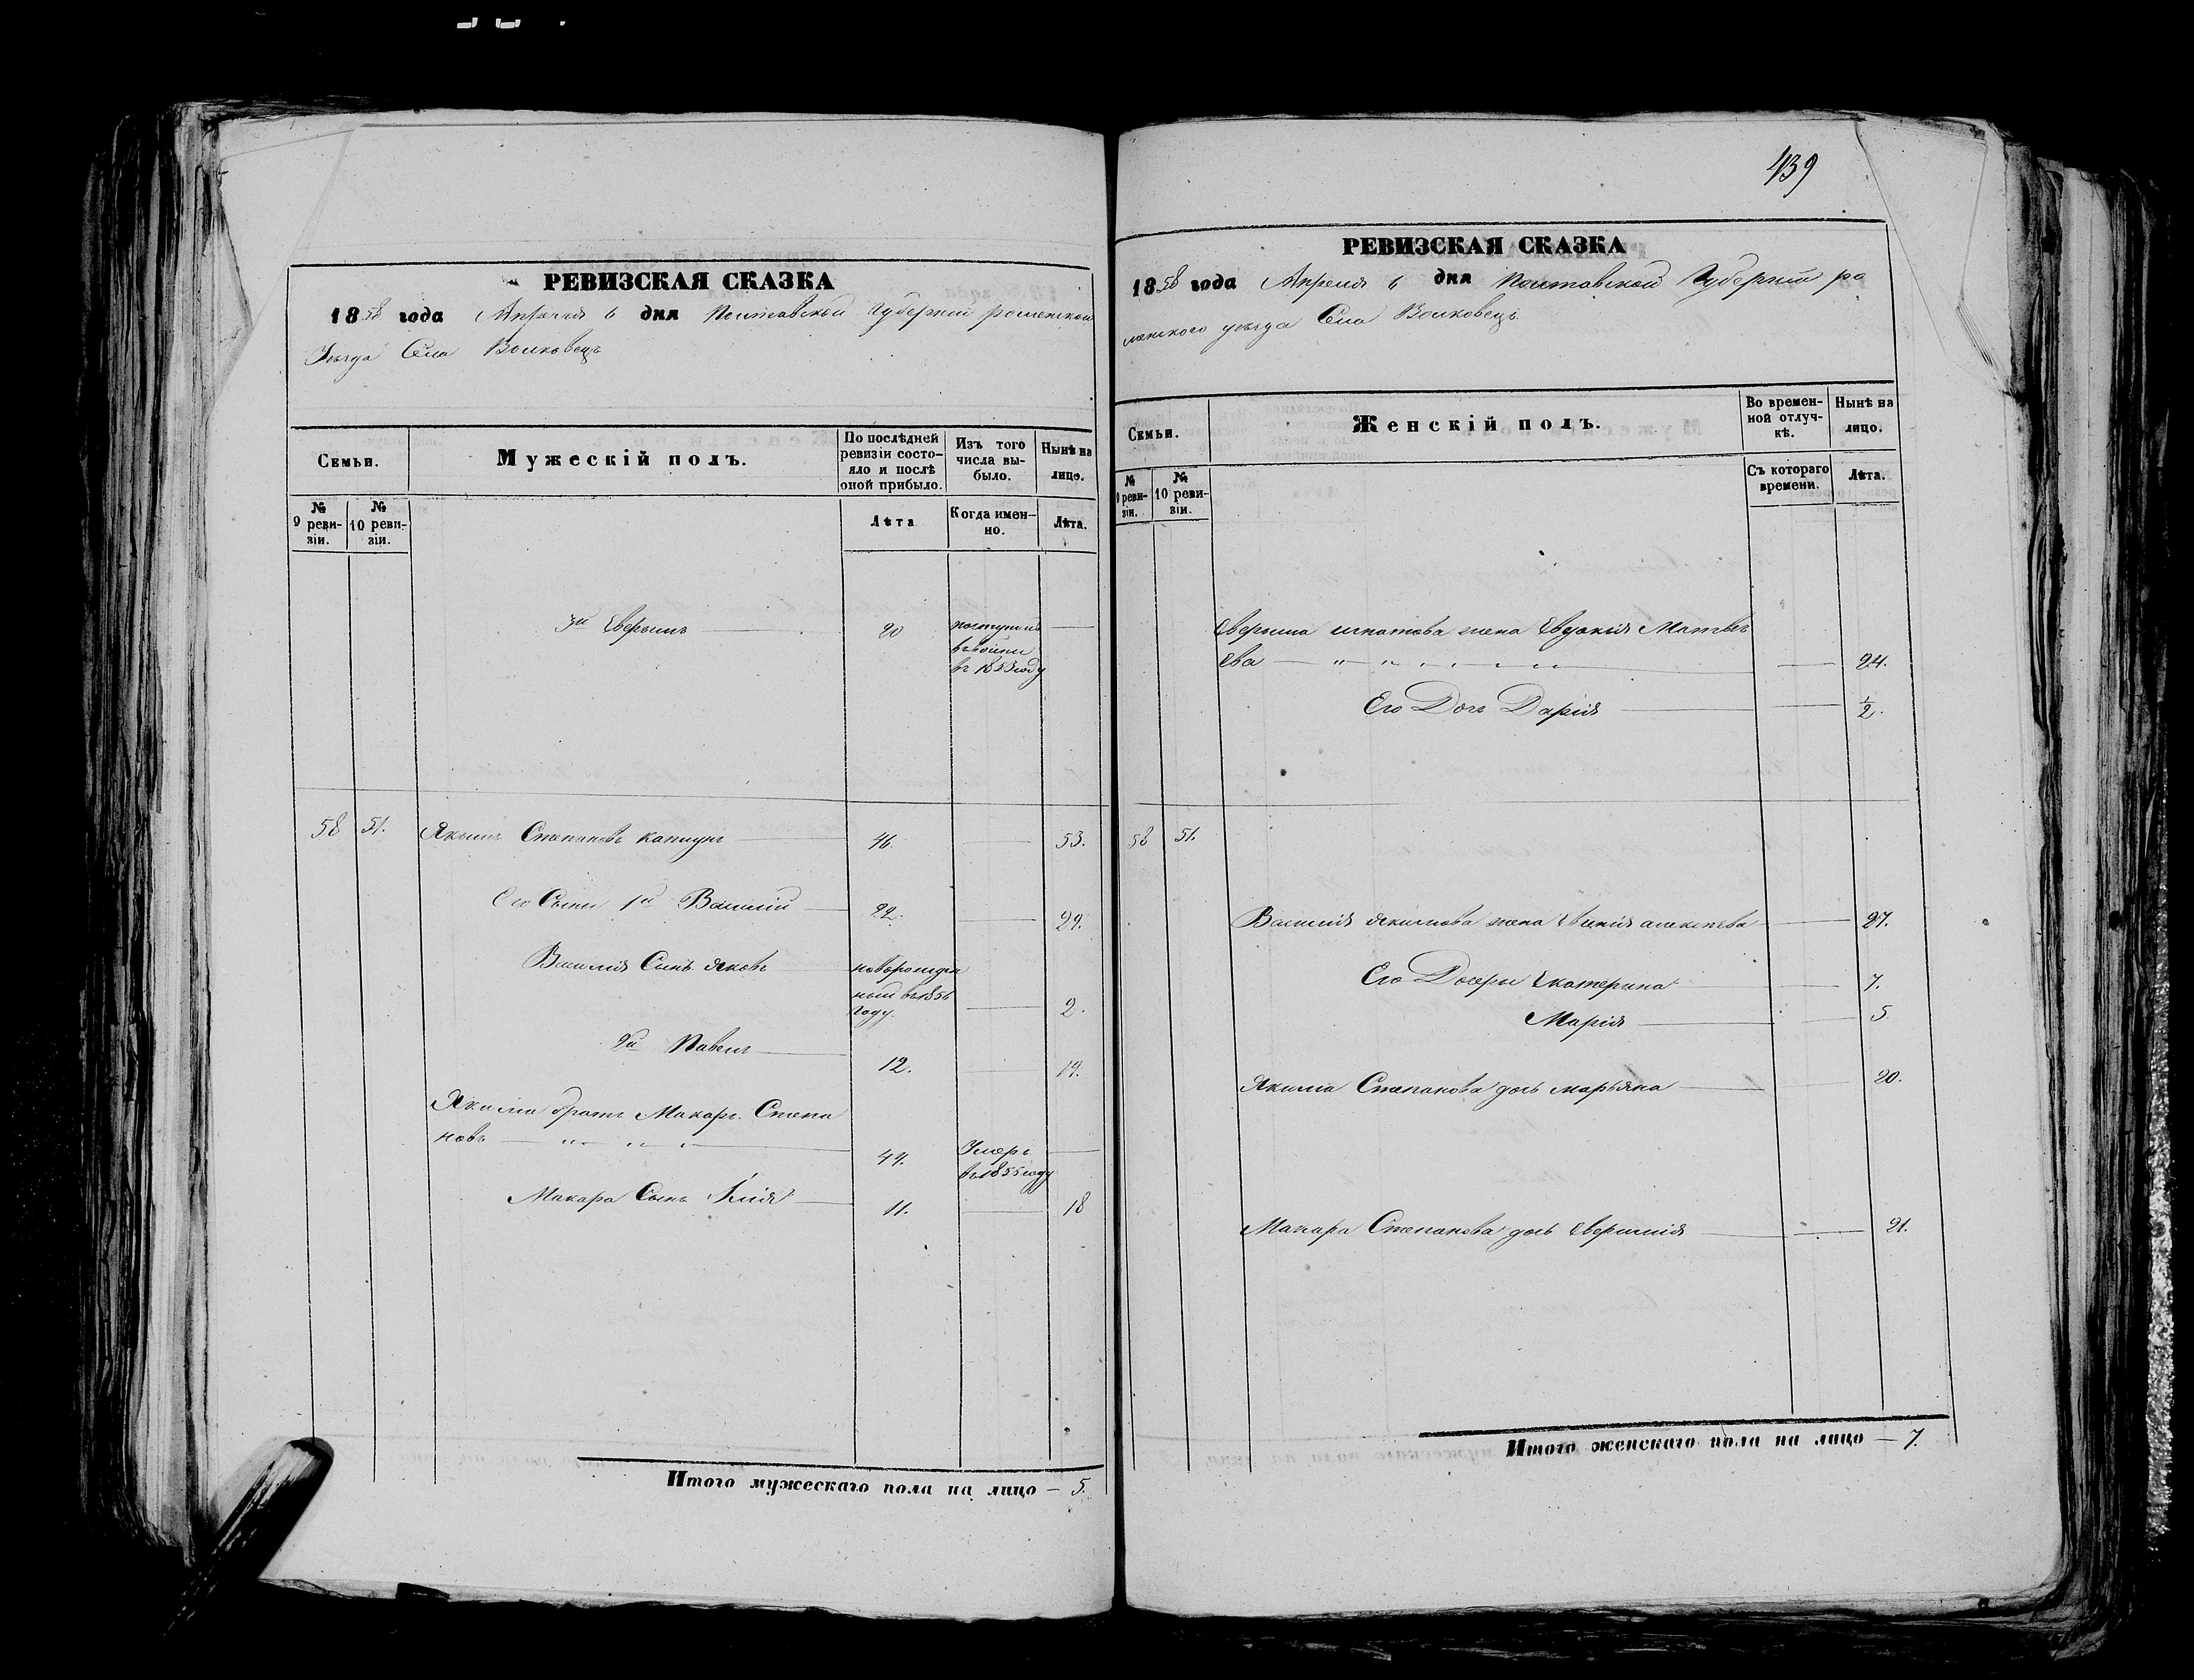 РЕВИЗСКАЯ СКАЗКА
1858 года Апреля 6 дня Полтавской Губернии роменского
Уезда Села Волковец
Семьи.
Мужескій полъ.
По послѣдней ревизіи состо-
яло и послѣ
оной прибыло.
Изъ того
числа вы-
было.
Нынѣ на
лицо.
№
9 реви-
зіи.
№
10 реви-
зіи.
Лѣта
Когда имен-
но.
Лѣта.
3й 20 поступилъ
въ 1853 году
58 51. Якимъ Степановъ 46. 53.
Его Сыны 1й Василій 22. 29.
Василія Сынъ Яковъ новорожден
ный въ 1856
году. 2.
2й Павелъ 12. 19.
Якима братъ Макаръ Степа
новъ 44. Умеръ
въ 1855 году
Макара Сынъ Илія 11. 18
Итого мужескаго пола на лицо — 5.
439
РЕВИЗСКАЯ СКАЗКА
1858 года Апреля 6 дня Полтавской Губерніи ро
менского уезда Села Волковец
Семьи.
Женскій полъ.
Во времен-
ной отлуч-
кѣ.
Нынѣ на
лицо.
№
9 реви-
зіи.
№
10 реви-
зіи.
Съ котораго
времени.
Лѣта.
жена Евдокія Матвѣ
ева 24.
Его Дочь Дарія ½.
58 51.
Василія Якимова жена алексѣева 27.
Его Дочери Екатерина 7.
Марія 5
Якима Степанова дочь марьяна 20.
Макара Степанова дочь 21.
Итого женскаго пола на лицо — 7.